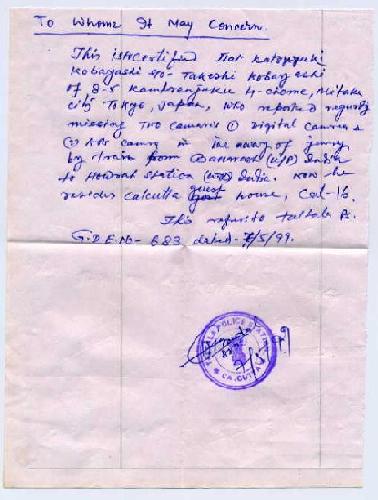 To Whome It May Concern.
This is certified that Katoyuki
Kobayashi S/O- Takeshi Kobayashi
of 2-5 Kamirenjaku 4-chome, Mitaka
city Tokyo, Japan, who reported regarding
missing two cameras ① Digital camera &
② APS camera in the away of jurny
by train from Benaras (U/P) India
to Howrah Station (W/B) India. Now he
resides calcutta guest house, Cal-16.
This refer to Taltala P.
G.D.E. No- 683 dated- 7/5/99.
POLICE STATION
CALCUTTA
7/5/99